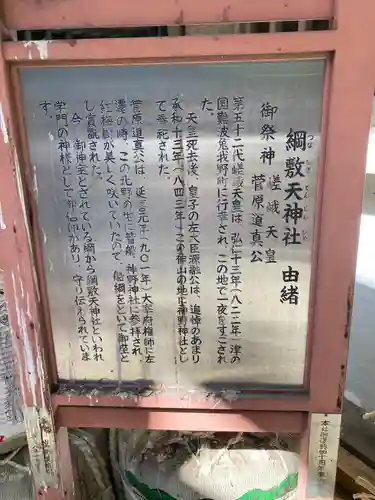 つなしきてんじんしゃ
綱敷天神社 由緒
御祭神 嵯峨天皇
菅原道真公
第五十二代嵯峨天皇は、弘仁十三年(八二二年)津の
国難波兎我野町に行幸され、この地で一夜をすごされ
た。
天皇死去後、皇子の左大臣源融公は、追悼のあまり
承和十三年(八四三年)この御山の地に神野神社とし
て奉祀された。
菅原道真公は、延喜元年(九〇一年)大宰府権師に左
遷の時、この北野の地に皆船、神野神社に参拝され、
紅梅樹が美しく咲いていたので、船綱をといて御座と
し賞翫された。
今、御神宝とされている綱から綱敷天神社といわれ
学門の神様として御信仰があり、守り伝えられていま
す。